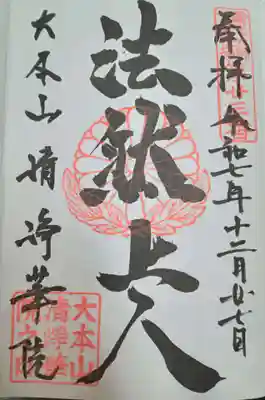 奉拝 令和七年十二月廿七日
法然上人
大本山 清浄華院
大本山